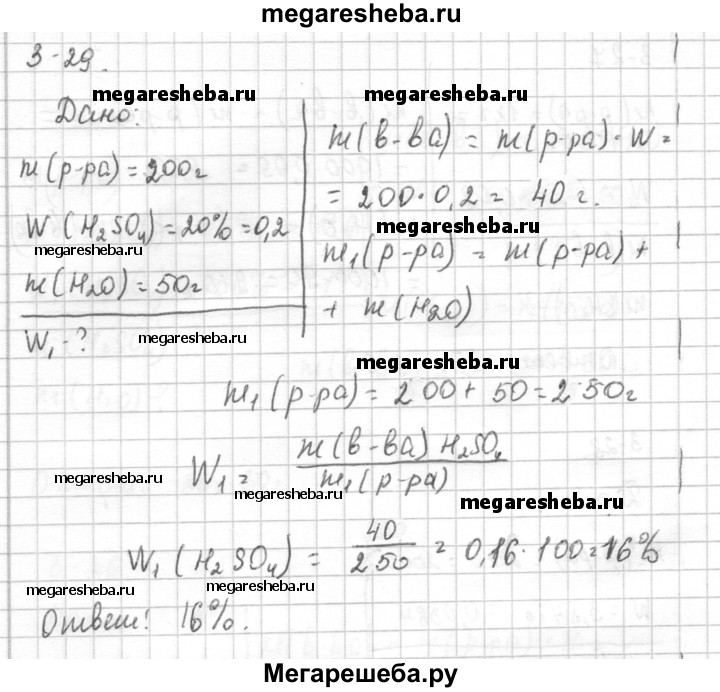 megaresheba.ru
3-29.
megaresheba.ru
megaresheba.ru
Дано:
m(р-ра) = 200г
W (H₂SO₄) = 20% = 0,2
megaresheba.ru
m(H₂O) = 50г
W₁ - ?
megaresheba.ru
m(в-ва) = m(р-ра)·W =
= 200·0,2 = 40 г.
megaresheba.ru
m₁(р-ра) = m(р-ра) +
+ m(H₂O)
megaresheba.ru
m₁(р-ра) = 200 + 50 = 250г
W₁ = m(в-ва) H₂SO₄ / m₁(р-ра)
megaresheba.ru
megaresheba.ru
megaresheba.ru
W₁(H₂SO₄) = 40 / 250 = 0,16·100 = 16%
megaresheba.ru
megaresheba.ru
Ответ: 16%.
megaresheba.ru
Мегарешеба.ру